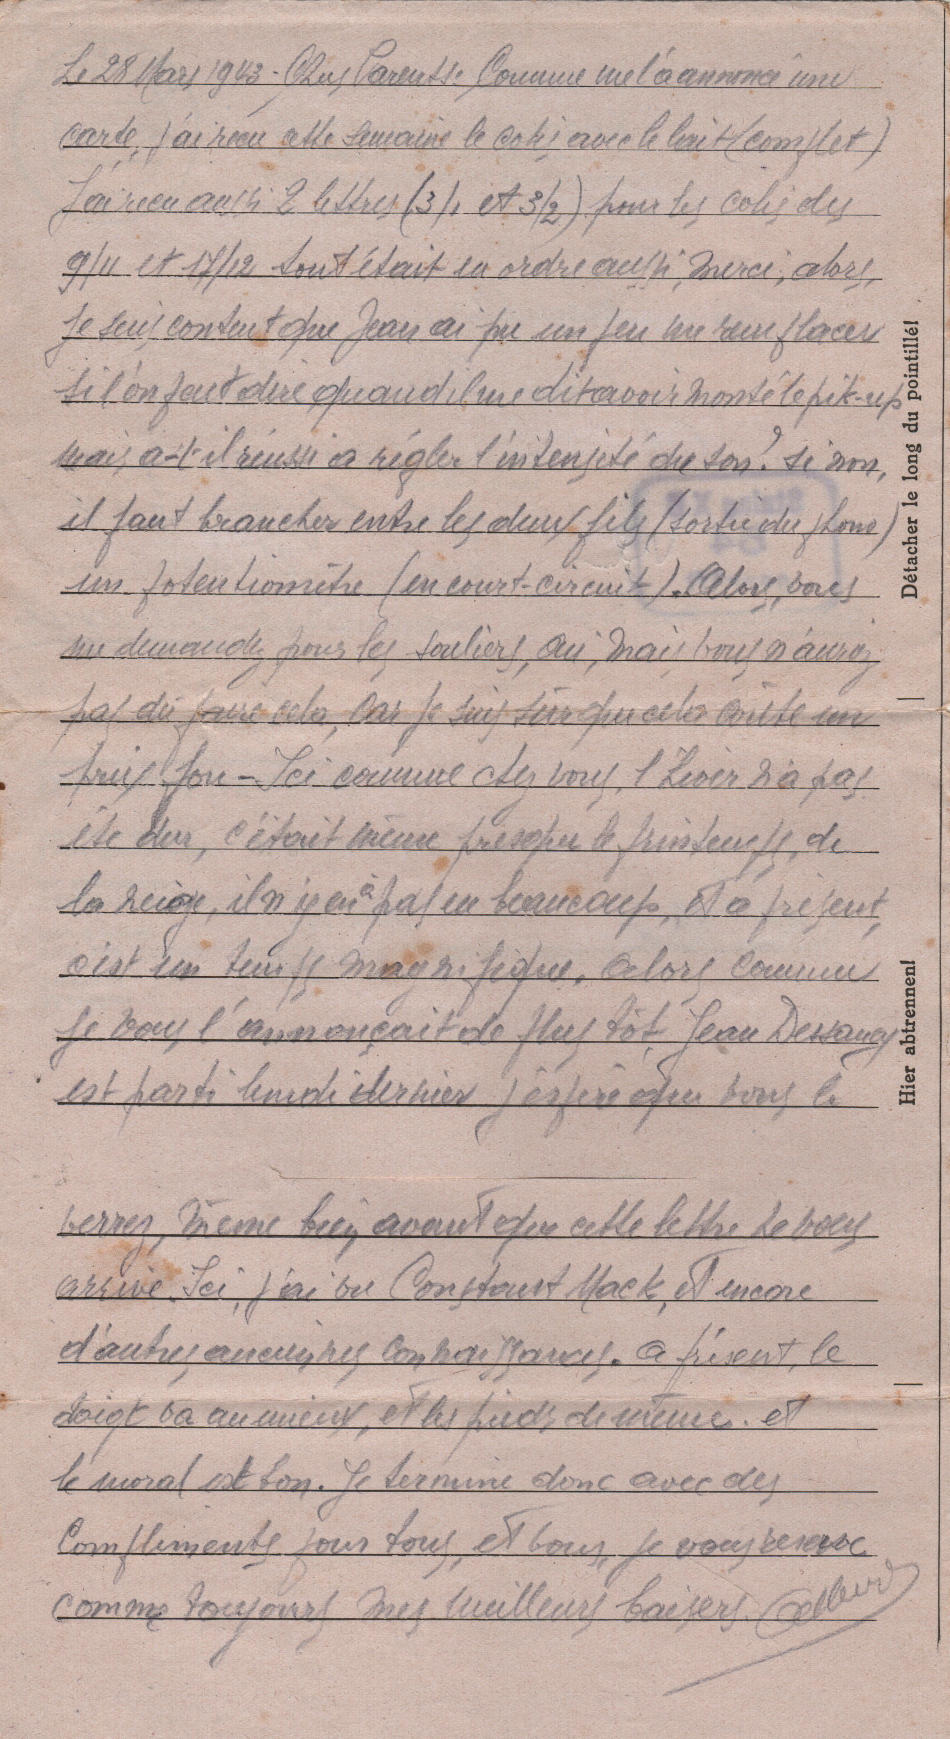 Le 28 Mars 1943 - Chers Parents. Comme me l'a annoncé une
carte, j'ai reçu cette semaine le colis avec le lait (complet)
J'ai reçu aussi 2 lettres (3/1 et 3/2) pour les colis des
9/11 et 17/12 tout était en ordre aussi, merci, alors,
je suis content que Jean ai pu un peu me remplacer
si l'on peut dire, quand il me dit avoir monté le pik-up
mais a-t-il réussi a régler l'intensité du son? Si non,
il faut brancher entre les deux fils (sortie du phono)
un potentiomètre (en court-circuit). Alors, vous
me demandez pour les souliers, oui, mais vous n'auriez
pas dû faire cela, car je suis sûr que cela coûte un
prix fou - Ici comme chez vous, l'hiver n'a pas
été dur, c'était même presque le printemps, de
la neige, il n'y en a pas eu beaucoup, et à présent,
c'est un temps magnifique. Alors comme
je vous l'annonçait de plus tôt, Jean Dessaucy
est parti lundi dernier j'espère que vous le
verrez, même bien avant que cette lettre ne vous
arrive. Ici, j'ai vu Constant Mack, et encore
d'autres anciennes connaissances. A présent, le
doigt va au mieux, et les pieds de même. et
le moral est bon. Je termine donc avec des
Compliments pour tous, et vous, je vous réserve
comme toujours mes meilleurs baisers.
Détacher le long du pointillé!
Hier abtrennen!